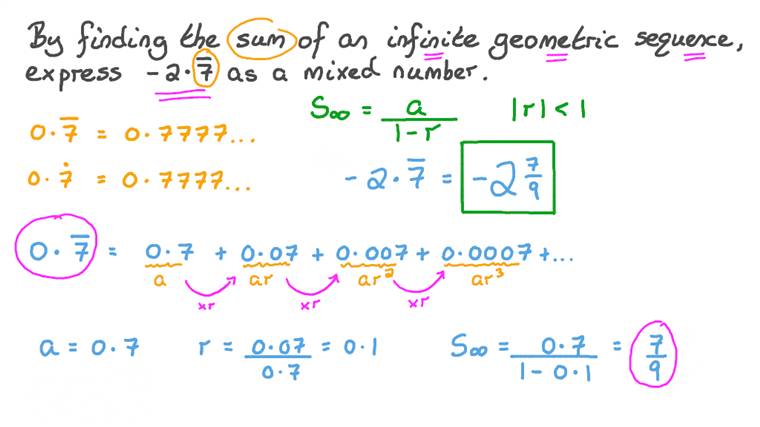 By finding the sum of an infinite geometric sequence,
express -2.7̅ as a mixed number.
S∞ = a/(1-r) |r|<1
0.7̅ = 0.7777...
0.7̇ = 0.7777...
-2.7̅ = -2 7/9
0.7̅ = 0.7 + 0.07 + 0.007 + 0.0007 + ...
a ar ar² ar³
×r ×r ×r
a = 0.7 r = 0.07/0.7 = 0.1 S∞ = 0.7/(1-0.1) = 7/9